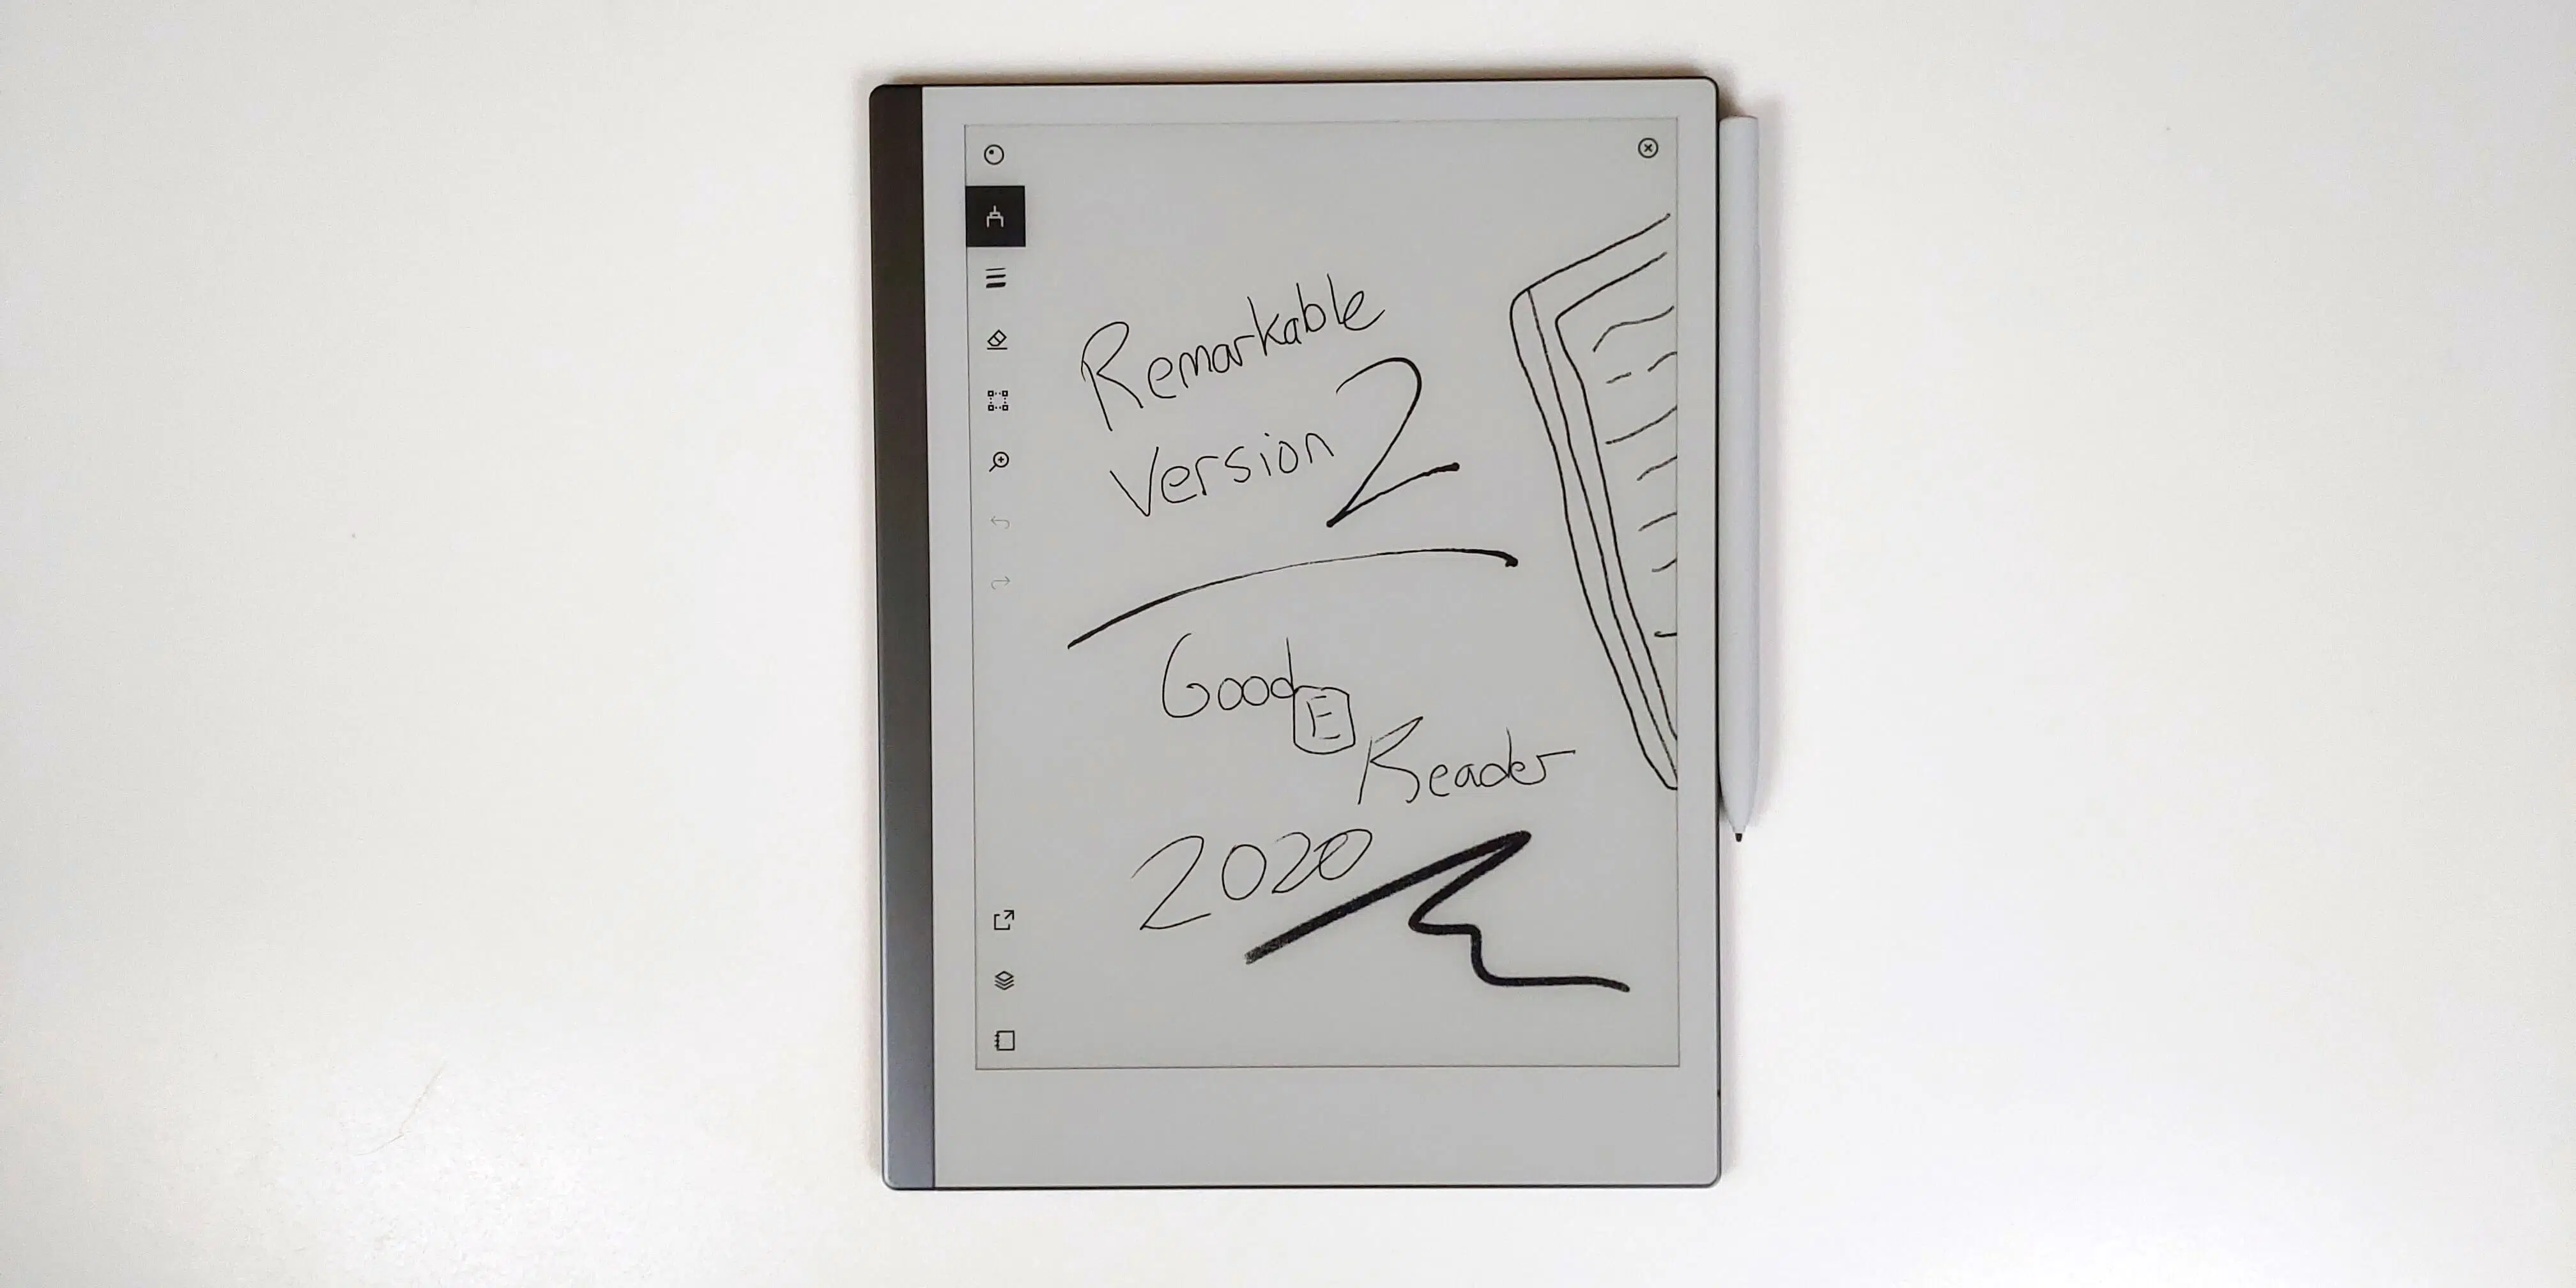 Remarkable
Version 2
Good
E
Reader
2020